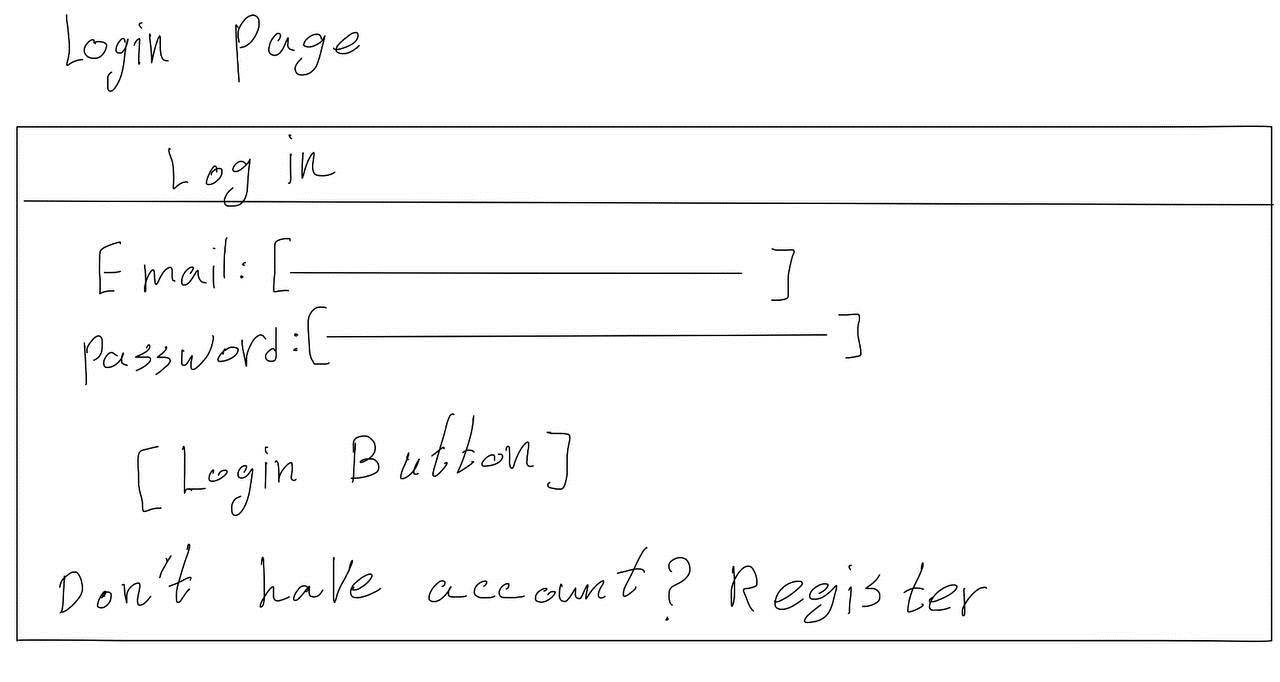 Login Page
Log in
Email: [ ]
Password: [ ]
[Login Button]
Don't have account? Register